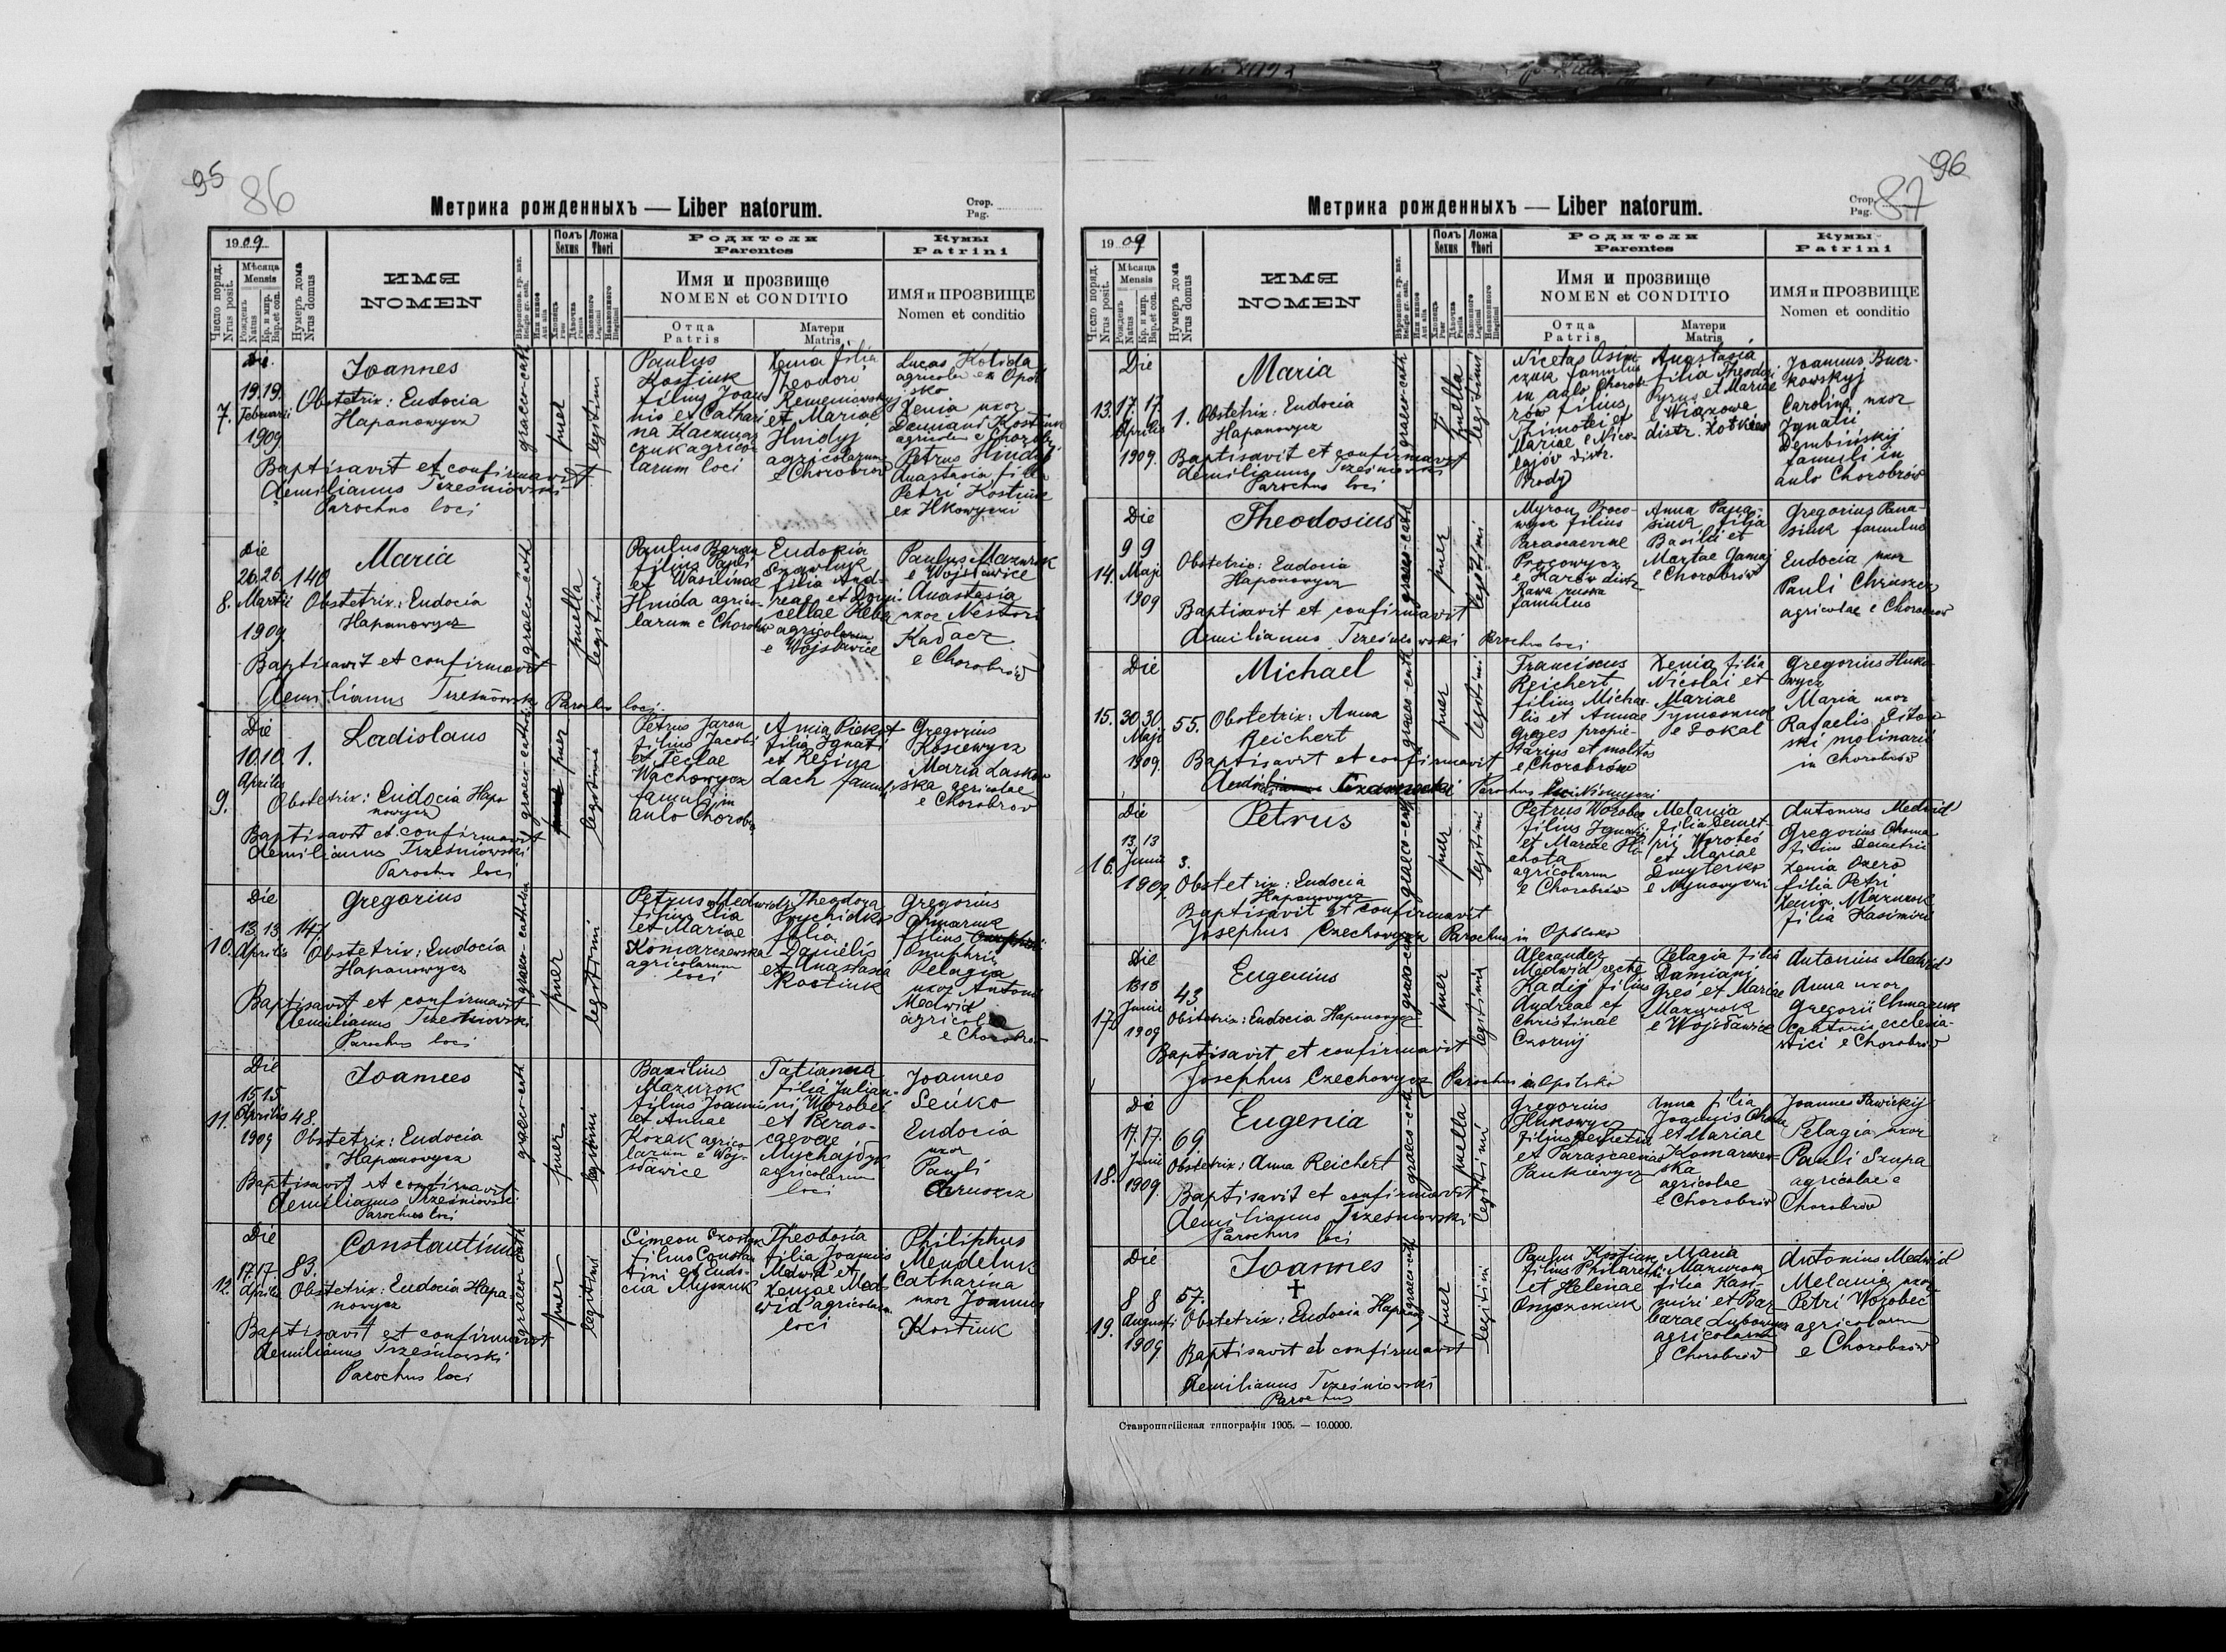 95
86
Метрика рожденныхъ — Liber natorum.
Стор.
Pag.
1909
Число поряд.
Nrus posit.
Мѣсяца
Mensis
Рожденъ
Natus
Кр. и мир.
Bap. et con.
Нумеръ дома
Nrus domus
ИМЯ
NOMEN
Полъ
Sexus
Ложа
Thori
Родители
Parentes
Имя и прозвище
NOMEN et CONDITIO
Отца
Patris
Матери
Matris
Кумы
Patrini
ИМЯ и ПРОЗВИЩЕ
Nomen et conditio
7.
Die
19. 19.
Februarii
1909
Joannes
Obstetrix: Eudocia
Hapanowycz
Baptisavit et confirmavit
Aemilianus Trześniowski
Parochus loci
graeco-cath
puer
legitimi
Paulus
Kostiuk
filius Joan
nis et Cathari
na
agrico
larum loci
Xenia filia
Theodori
et Mariae
Hnidyj
agricolarum
e Chorobrów
Lucas Kolida
agricola ex Opol
sko
Xenia uxor
Damiani Kostiuk
agricolae e Chorobrów
Petrus Hnidyj
Anastasia filia
Petri Kostiuk
ex Ilkowyci
8.
Die
26. 26.
Martii
1909
140
Maria
Obstetrix: Eudocia
Hapanowycz
Baptisavit et confirmavit
Aemilianus Trześniowski Parochus loci
graeco-cath
puella
legitimi
Paulus Baran
filius Pauli
et Wasilinae
Hnida agrico-
larum e Chorobrów
Eudoxia
Szawluk
filia And-
reae et
agricolarum
e Wojsławice
Paulus Mazurok
e Wojsławice
Anastasia
uxor Nestori
Kadacz
e Chorobrów
9.
Die
10. 10.
Aprilis
1.
Ladislaus
Obstetrix: Eudocia Hapa
nowycz
Baptisavit et confirmavit
Aemilianus Trześniowski
Parochus loci
graeco-catholica
puer
legitimi
Petrus Jaron
filius Jacobi
et Teclae
Wachowycz
famuli in
aulo Chorobrów
Anna Piekot
filia Ignati
et Regina
Lach famuli
Gregorius
Kosiewycz
Maria Lasko
wska agricolae
e Chorobrów
10.
Die
13. 13
Aprilis
147
Gregorius
Obstetrix: Eudocia
Hapanowycz
Baptisavit et confirmavit
Aemilianus Trześniowski
Parochus loci
graeco-catholica
puer
legitimi
Petrus Medwid
filius Elia
et Mariae
Komarzewska
agricolarum
loci
Theodora
Prychidko
filia
Danielis
et Anastasia
Kostiuk
Gregorius
Chmaruk
filius
Onuphrii
Pelagia
uxor Antoni
Medwid
agricol
e Chorobrów
11.
Die
15 15
Aprilis
1909
48.
Joannes
Obstetrix: Eudocia
Hapanowycz
Baptisavit et confirmavit
Aemilianus Trześniowski
Parochus loci
graeco-cath
puer
legitimi
Basilius
Mazurok
filius Joannis
et Annae
Kozak agrico
larum e Woj-
sławice
Tatianna
filia Julian-
ni Worobec
et Paras-
caevae
Mychajłyk
agricolarum
loci
Joannes
Seńko
Eudocia
uxor
Pauli
Chruszcz
12.
Die
17. 17.
Aprilis
83.
Constantinus
Obstetrix: Eudocia Hapa-
nowycz
Baptisavit et confirmavit
Aemilianus Trześniowski
Parochus loci
graeco-cath
puer
legitimi
Simeon
filius Constan
tini et Eudo-
cia
Theodosia
filia Joannis
Medwid et
Xeniae Med-
wid agricolarum
loci
Philiphus
Mendeluk
Catharina
uxor Joannis
Kostiuk
96
87
Метрика рожденныхъ — Liber natorum.
Стор.
Pag.
1909
Число поряд.
Nrus posit.
Мѣсяца
Mensis
Рожденъ
Natus
Кр. и мир.
Bap. et con.
Нумеръ дома
Nrus domus
ИМЯ
NOMEN
Полъ
Sexus
Ложа
Thori
Родители
Parentes
Имя и прозвище
NOMEN et CONDITIO
Отца
Patris
Матери
Matris
Кумы
Patrini
ИМЯ и ПРОЗВИЩЕ
Nomen et conditio
13.
Die
17. 17
Aprilis
1909.
1.
Maria
Obstetrix: Eudocia
Hapanowycz
Baptisavit et confirmavit
Aemilianus Trześniowski
Parochus loci
graeco-cath
puella
legitimi
Nicetas
famulus
in aulo Chorob-
rów filius
Timotei et
Mariae e Nico-
lajów distr.
Brody
Anastasia
filia Theodori
Pyrus et Mariae
e Wiązowa
distr. Żołkiew
Joannes Bucz-
kowskyj
Carolina uxor
Ignatii
Dembińskij
famuli in
aulo Chorobrów
14.
Die
9 9
Maji
1909
Theodosius
Obstetrix: Eudocia
Hapanowycz
Baptisavit et confirmavit
Aemilianus Trześniowski Parochus loci
graeco-cath
puer
legitimi
Myron Proco-
wycz filius
Parascaeviae
Procowycz
e Karów distr.
Rawa ruska
famulus
Anna Pana-
siuk filia
Basilii et
Martae
e Chorobrów
Gregorius Pana-
siuk famulus
Eudocia uxor
Pauli Chruszcz
agricolae e Chorobrów
15.
Die
30. 30.
Maji
1909.
55.
Michael
Obstetrix: Anna
Reichert
Baptisavit et confirmavit
graeco-cath
puer
legitimi
Franciscus
Reichert
filius Micha-
lis et Annae
e Chorobrów
Xenia filia
Nicolai et
Mariae
e Sokal
Gregorius Huko-
wycz
Maria uxor
Rafaelis
ski molinarii
in Chorobrów
16.
Die
13, 13
Junii
1909.
3.
Petrus
Obstetrix: Eudocia
Hapanowycz
Baptisavit et confirmavit
Josephus Czechowycz Parochus in Opolsko
graeco-cath
puer
legitimi
Petrus Worobec
filius Ignatii
et Mariae Ho-
chota
agricolarum
e Chorobrów
Melania
filia Demet-
rii Worobec
et Mariae
Dmyterko
Antonius Medwid
Gregorius Choma
filius Demetrii
Xenia Ozero
filia Petri
Xenia Mazurok
filia Kasimiri
17.
Die
13 13
Junii
1909
43
Eugenius
Obstetrix: Eudocia Hapanowycz
Baptisavit et confirmavit
Josephus Czechowycz Parochus in Opolsko
graeco-cath
puer
legitimi
Alexander
Medwid recte
Kadij filius
Andreae et
Christinae
Czornij
Pelagia filia
Damiani
Greś et Mariae
Mazurok
e Wojsławice
Antonius Medwid
Anna uxor
Gregorii Chmaruk
cantoris ecclesia-
stici e Chorobrów
18.
Die
17. 17.
Junii
1909.
69
Eugenia
Obstetrix: Anna Reichert
Baptisavit et confirmavit
Aemilianus Trześniowski
Parochus loci
graeco-cath
puella
legitimi
Gregorius
Hukowycz
filius Demetrii
et Parascaeviae
Pankiewycz
Anna filia
Joannis Choma
et Mariae
Komarzew-
ska
agricolae
e Chorobrów
Joannes Sawickij
Pelagia uxor
Pauli Szupa
agricolae e
Chorobrów
19.
Die
8 8
Augusti
1909.
57.
Joannes
✝
Obstetrix: Eudocia Hapanow
Baptisavit et confirmavit
Aemilianus Trześniowski
Parochus
graeco-cath
puer
legitimi
Paulus Kostiuk
filius Philaretki
et Helenae
Maria
Mazurok
filia Kasi-
miri et Bar
barae Lubowycz
agricolarum
e Chorobrów
Antonius Medwid
Melania uxor
Petri Worobec
agricolarum
e Chorobrów
Ставропигійская типографія 1905. — 10.0000.